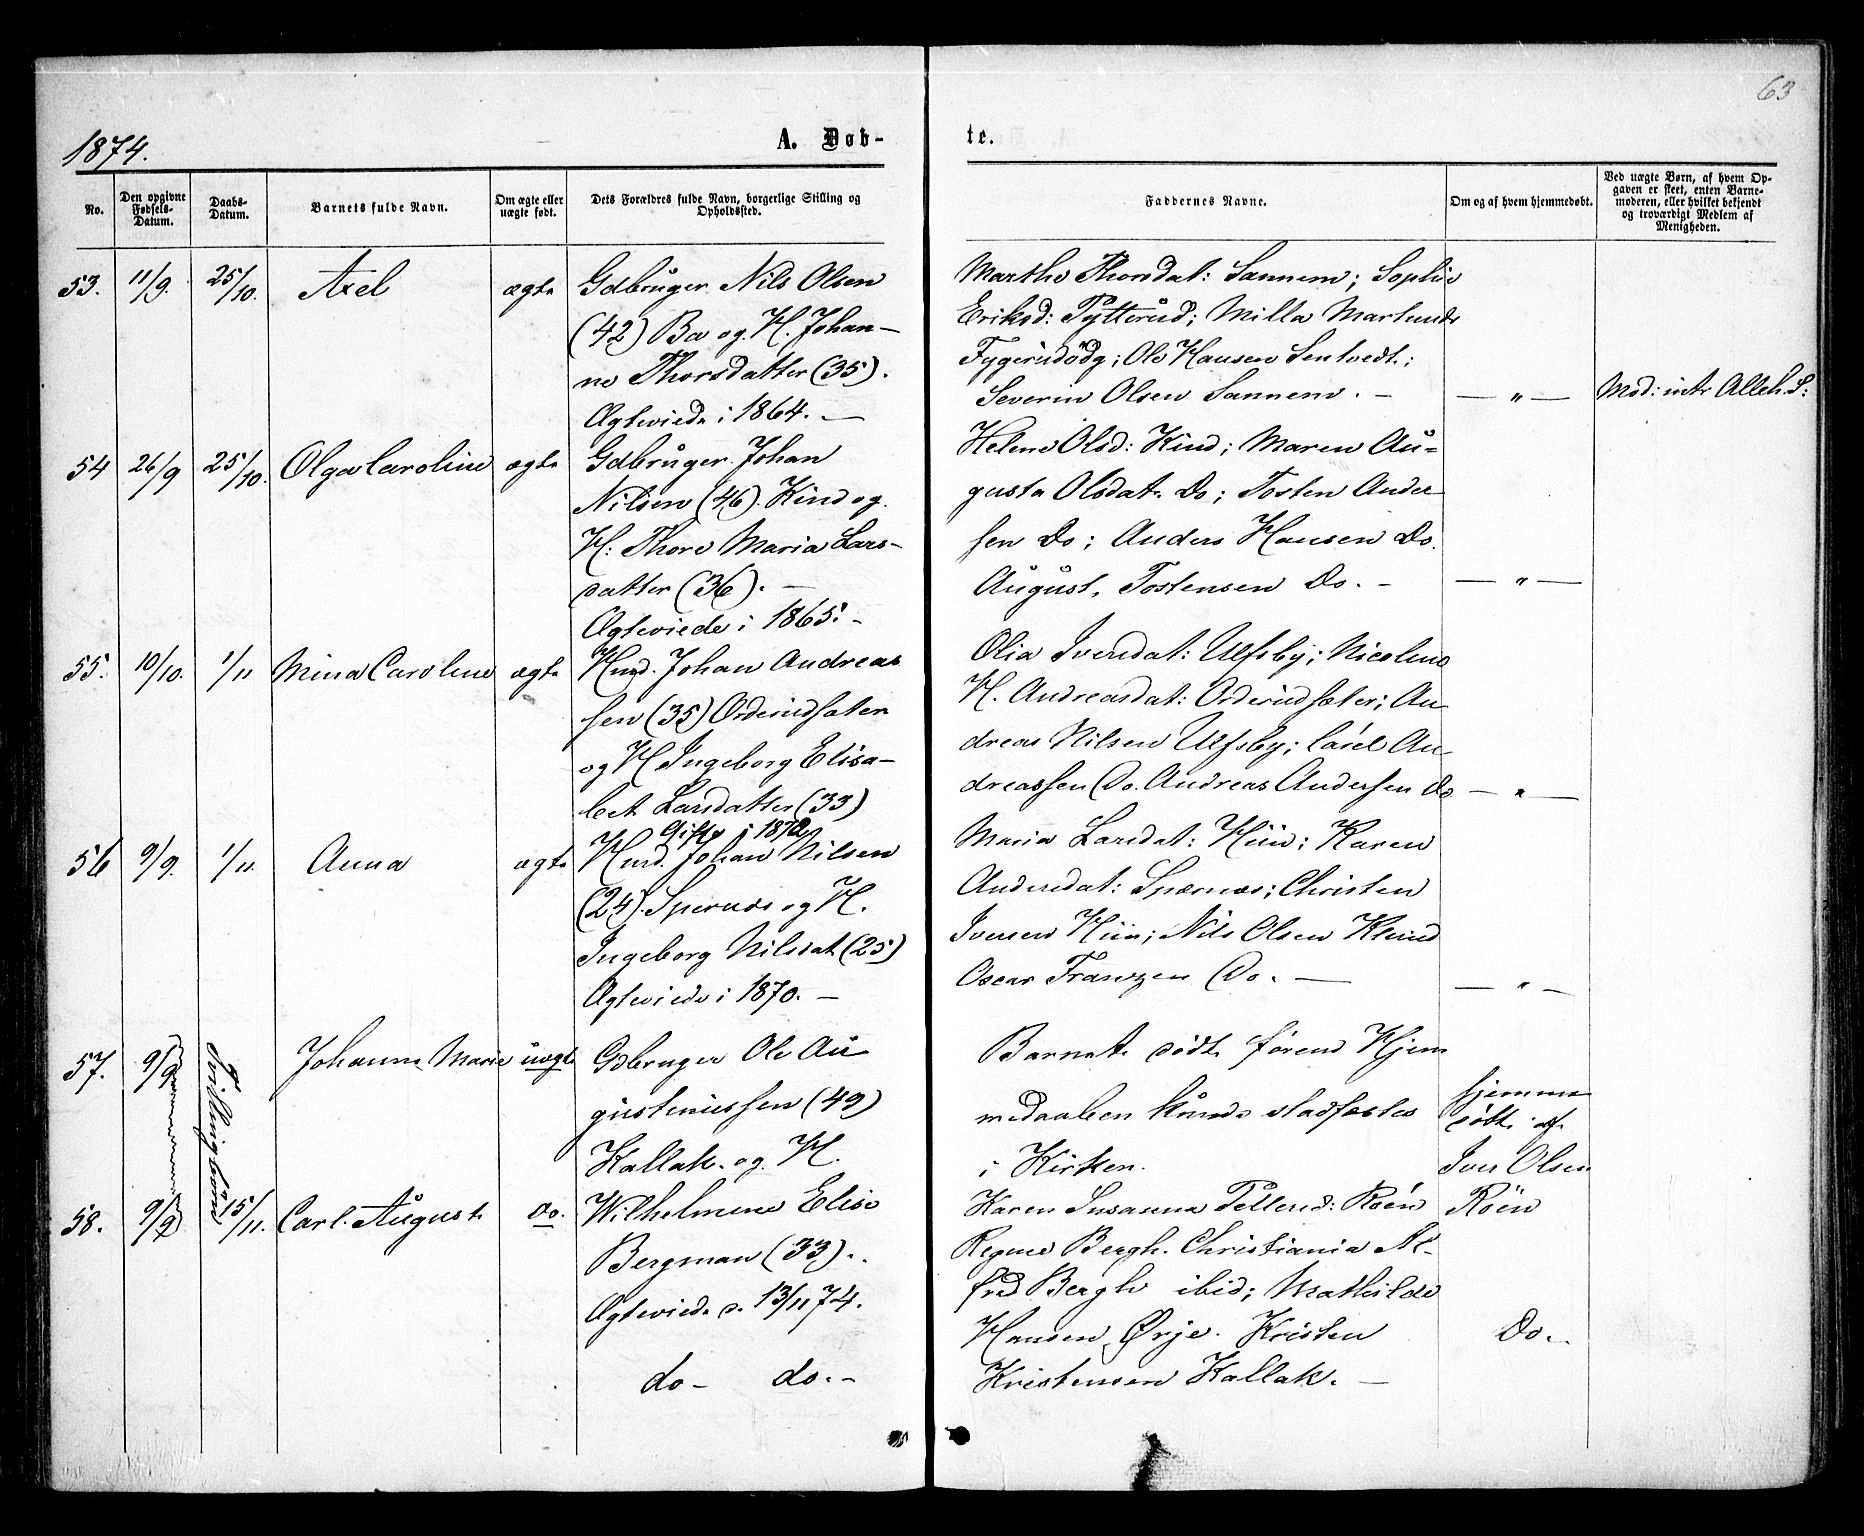 63
1874.
A. Døb-
te.
No.
Den opgivne Fødsels-Datum.
Daabs-Datum.
Barnets fulde Navn.
Om ægte eller uægte født.
Dets Forældres fulde Navn, borgerlige Stilling og Opholdssted.
Faddernes Navne.
Om og af hvem hjemmedøbt.
Ved uægte Børn, af hvem Opgaven er skeet, enten Barnemoderen, eller hvilket bekjendt og troværdigt Medlem af Menigheden.
53. 11/9. 25/10. Axel ægte Gdbruger Nils Olsen
(42) Ba og H. Johan-
ne Thorsdatter (35).
Ægteviede i 1864. —
Marthe Thorsdat: Sannem; Sophie
Eriksd: Tytterud; Milla Marlunds
Ole Hansen Sentvedt;
Severin Olsen Sannem. — — " —
54 26/9 25/10. Olga Caroline ægte Gdbruger Johan
Nilsen (46). Kind og
H: Thore Maria Lars-
datter (36). —
Ægteviede i 1865. -
Helene Olsd: Kind; Maren Au-
gusta Olsdat. Do; Tosten Ander-
sen Do; Anders Hansen Do.
August Tostensen Do. - — " —
55. 10/10. 1/11 Mina Caroline ægte Husd. Johan Andreas
sen (35) Orderudsæter
og H Ingeborg Elisa-
bet Larsdatter (33)
Gifte i 1872
Olia Iversdat: Ulfsby; Nicoline
H. Andreasdat: Orderudsæter; An
dreas Nilsen Ulfsby; Carel An
dreassen Do. Andreas Andersen Do — " —
56 9/9. 1/11. Anna ægte Husd. Johan Nilsen
(24). Spernæs og H.
Ingeborg Nilsdat (25)
Ægteviede i 1870. —
Maria Larsdat: Hiin; Karen
Andersdat: Spærnæs; Christen
Iversen Hiin; Nils Olsen Klund
Oscar Franzen Do. — — " —
57. 9/9 Tvillingbørn Johanne Marie uægte Gdbruger Ole Au
gustinussen (49)
Kallak. og H.
Barnet døde førend Hjem
medaaben kunde stadfæstes
i Kirken.
hjemme
døbt af
Iver Olsen
Röen
58. 9/9 15/11. Carl August do. Wilhelmine Elise
Bergman (33).
Ægteviede d. 13/11 74.
do - do. -
Karen Susanna Röen
Bergh. Christiania Al-
fred Bergh ibid; Mathilde
Hansen Ørje. Kristen
Kristensen Kallak. —
Do. -